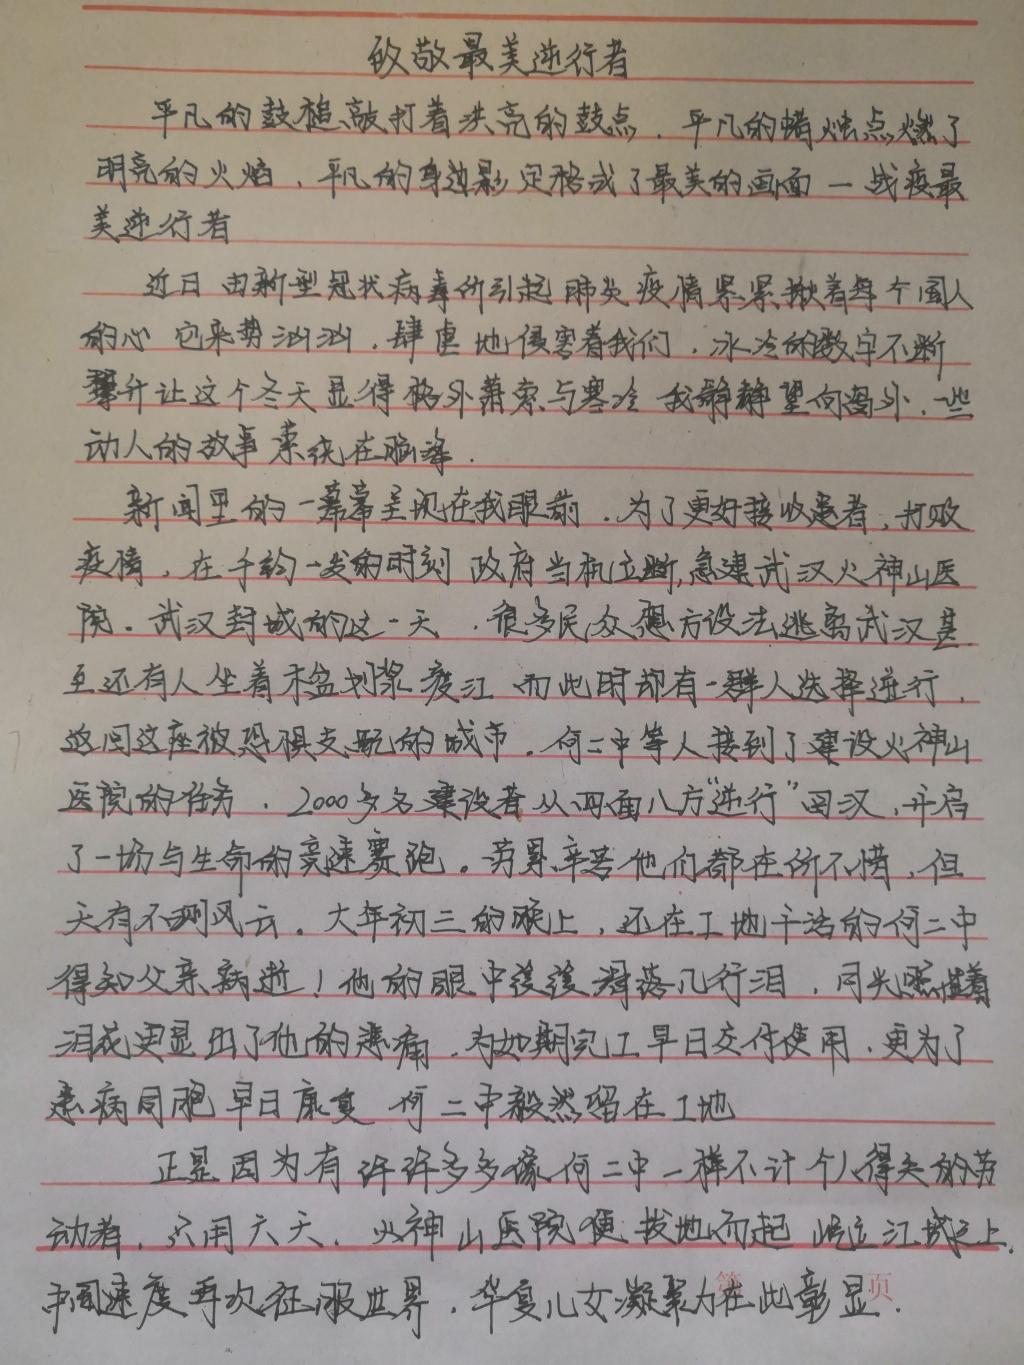 致敬最美逆行者
平凡的鼓槌敲打着洪亮的鼓点，平凡的蜡烛点燃了
明亮的火焰，平凡的身边影定格成了最美的画面一战疫最
美逆行者
近日由新型冠状病毒所引起肺炎疫情紧紧揪着每个国人
的心它来势汹汹，肆虐地侵害着我们，冰冷的数字不断
攀升让这个冬天显得格外萧索与寒冷我静静望向窗外，一些
动人的故事萦绕在脑海．
新闻里的一幕幕呈现在我眼前．为了更好接收患者，打败
疫情，在千钧一发的时刻政府当机立断，急建武汉火神山医
院。武汉封城的这一天，很多民众想方设法逃离武汉甚
至还有人坐着木盆划浆渡江而此时却有一群人选择逆行，
返回这座被恐惧支配的城市．何二中等人接到了建设火神山
医院的任务，2000多名建设者从四面八方“逆行”回汉，开启
了一场与生命的竞速赛跑。劳累辛苦他们都在所不惜，但
天有不测风云。大年初三的晚上，还在工地干活的何二中
得知父亲病逝！他的眼中缓缓滑落几行泪，月光照着
泪花更显出了他的悲痛，为如期完工早日交付使用，更为了
患病同胞早日康复何二中毅然留在工地
正是因为有许许多多像何二中一样不计个人得失的劳
动者，只用六天，火神山医院便拔地而起屹立江城之上．
中国速度再次征服世界，华夏儿女凝聚力在此彰显．
第 页